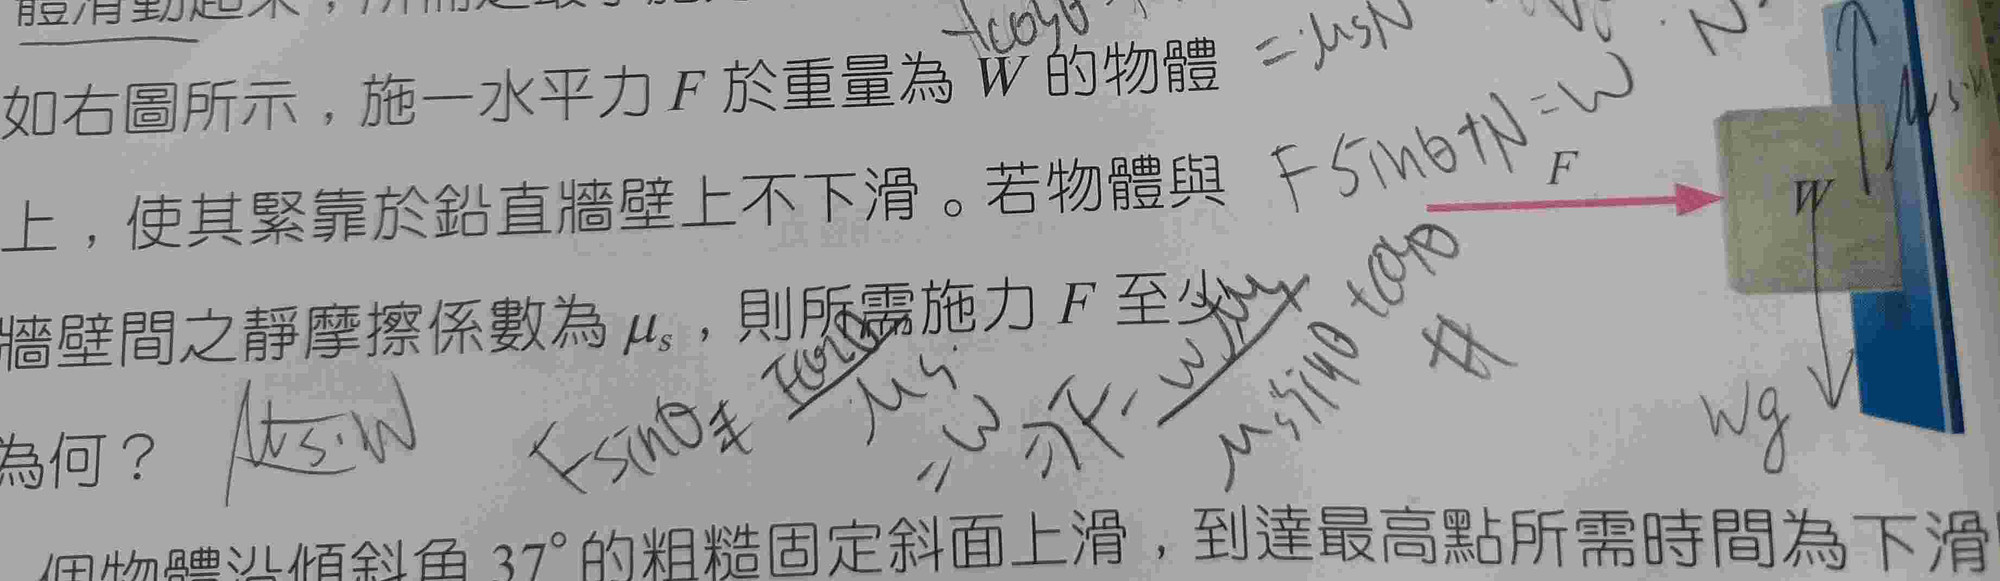 體滑動起來，所需之最小施力
如右圖所示，施一水平力 F 於重量為 W 的物體
上，使其緊靠於鉛直牆壁上不下滑。若物體與
牆壁間之靜摩擦係數為 μs，則所需施力 F 至少
為何？
個物體沿傾斜角 37° 的粗糙固定斜面上滑，到達最高點所需時間為下滑
F
W
Fcosθ
=μsN
Fsinθ+N=W
μs·N
Wg
μs·W
Fsinθ+
Fcosθ
μs
=W
⇒F=
Wμs
μssinθ+cosθ